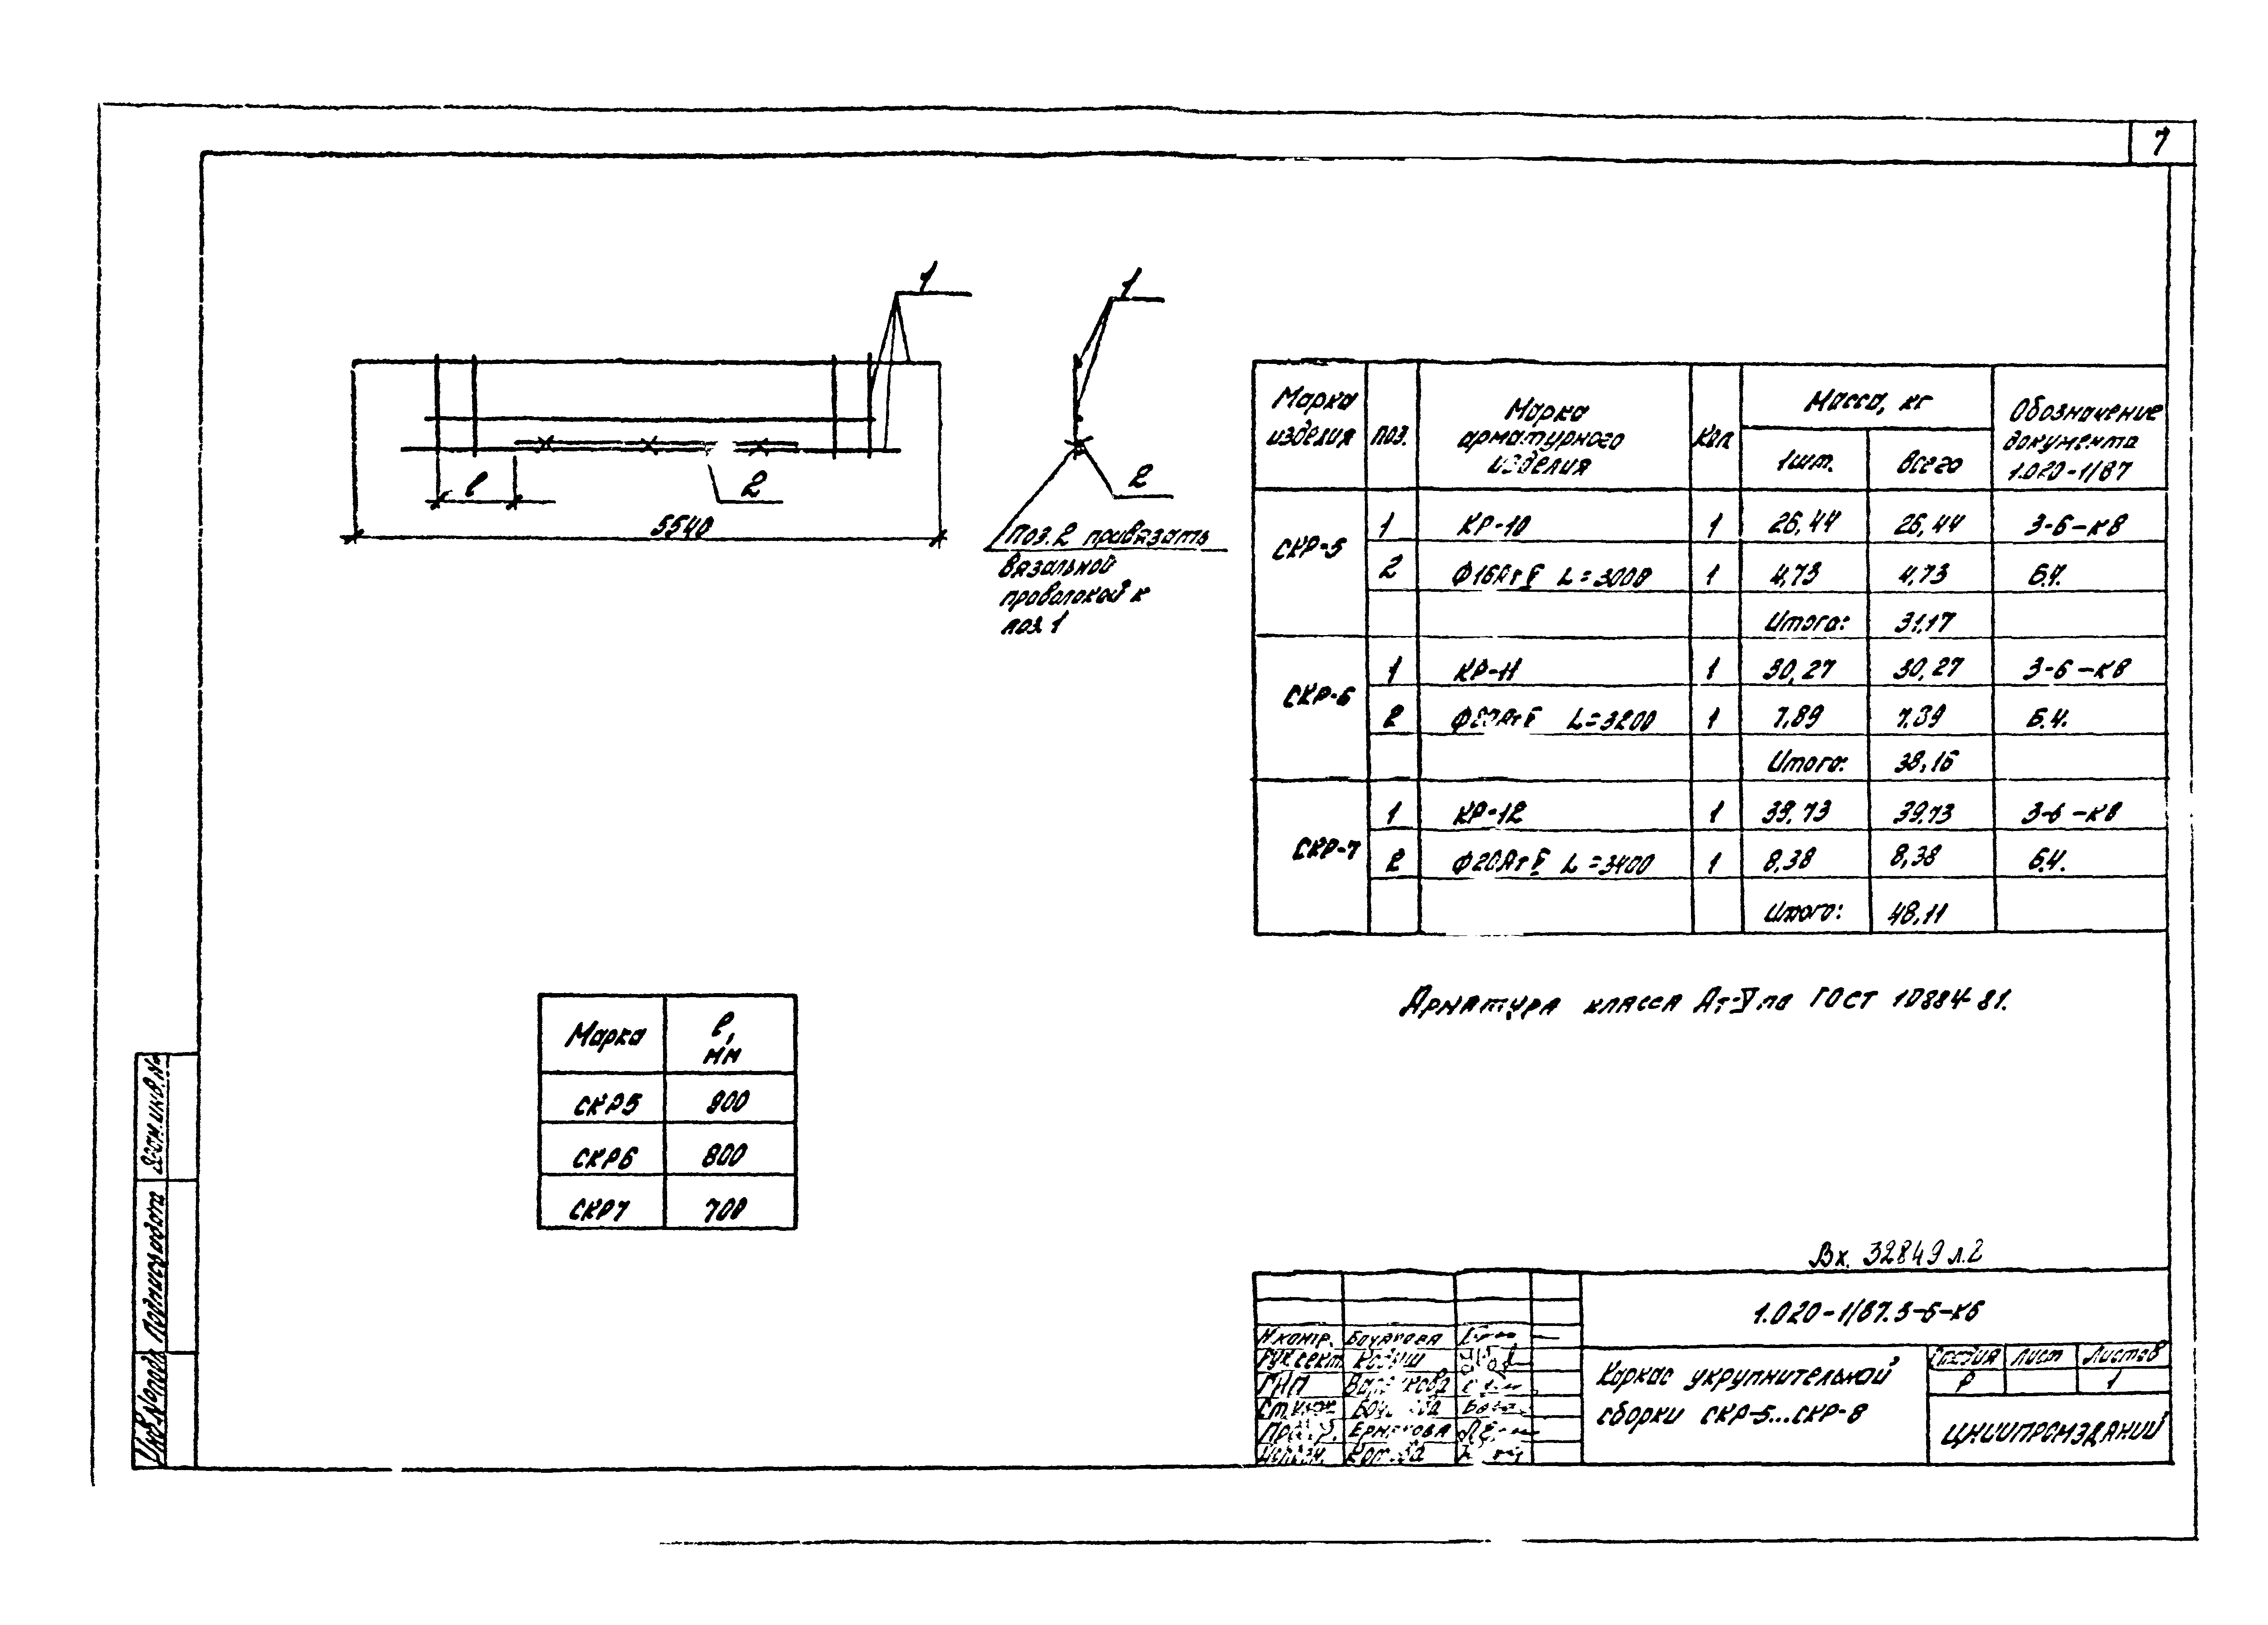 7
1
1
2
2
l
5540
Поз. 2 привязать
вязальной
проволокой к
поз. 1
Марка изделия поз. Марка арматурного изделия Кол Масса, кг Обозначение документа 1.020-1/87
1шт. Всего
СКР-5 1 КР-10 1 26,44 26,44 3-6-К8
2 Ф16Ат V L=3000 1 4,73 4,73 б.ч.
Итого: 31,17
СКР-6 1 КР-11 1 30,27 30,27 3-6-К8
2 Ф20Ат V L=3200 1 7,89 7,89 б.ч.
Итого: 38,16
СКР-7 1 КР-12 1 39,73 39,73 3-6-К8
2 Ф20Ат V L=3400 1 8,38 8,38 б.ч.
Итого: 48,11
Арматура класса Ат-V по ГОСТ 10884-81.
Марка l, мм
СКР5 900
СКР6 800
СКР7 700
Вх. 32849 л.2
1.020-1/87.3-6-К6
Н.контр.
Рук.сект.
ГИП
Ст.инж.
Ермакова
Каркас укрупнительной
сборки СКР-5...СКР-8
Стадия Лист Листов
Р 1
ЦНИИПРОМЗДАНИЙ
Взам.инв.№
Подпись и дата
Инв.№ подл.